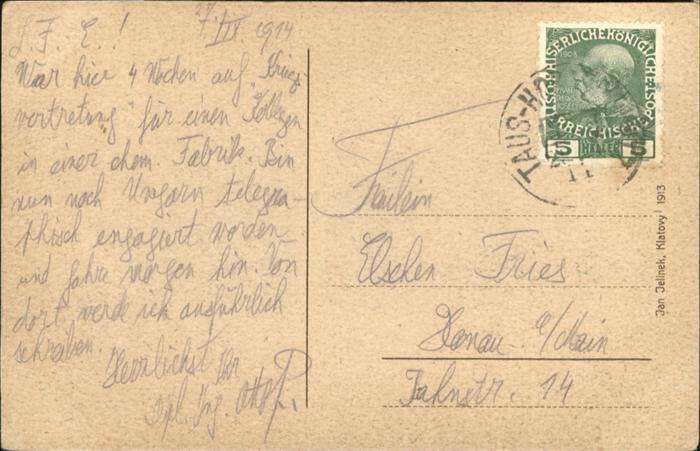 L. F. E.!
1914
War hier 4 Wochen auf "Kriegs
vertretung" für einen Kollegen
in einer chem. Fabrik. Bin
nun nach Ungarn telegra-
phisch engagiert worden
und fahre morgen hin. Von
dort werde ich ausführlich
schreiben.
Herzlichst Ihr
Dipl. Ing. Otto
KAISERLICHE KÖNIGLICHE
POST
5 HELLER 5
TAUS-
Fräulein
Elschen Fries
Hanau a/Main
Jahnstr. 14
Jan Jelínek, Klatovy 1913